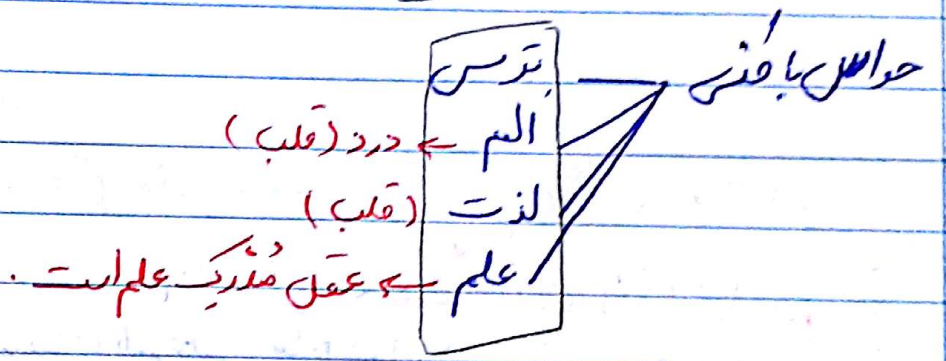 حواس باطنی
ترس
الم ← درد (قلب)
لذت (قلب)
علم ← عقل مُدْرِک علم است.